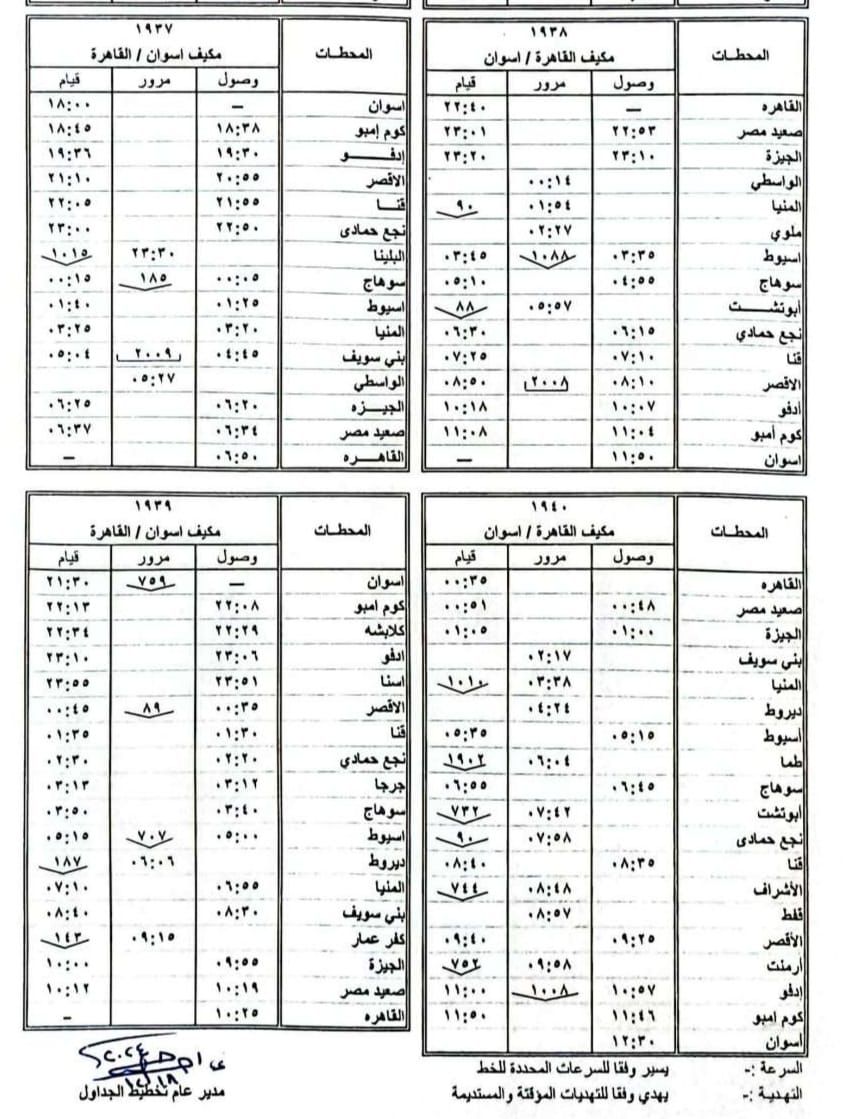 ١٩٣٨
المحطات
مكيف القاهرة / اسوان
وصول مرور قيام
القاهره — ٢٢:٤٠
صعيد مصر ٢٢:٥٣ ٢٣:٠١
الجيزة ٢٣:١٠ ٢٣:٢٠
الواسطي ٠٠:١٤
المنيا ٠١:٥٤ ٩٠
ملوي ٠٢:٢٧
اسيوط ٠٣:٣٥ ١٠٨٨ ٠٣:٤٥
سوهاج ٠٤:٥٥ ٠٥:١٠
أبوتشـــت ٠٥:٥٧ ٨٨
نجع حمادي ٠٦:١٥ ٠٦:٣٠
قنا ٠٧:١٠ ٠٧:٢٥
الاقصر ٠٨:١٠ ٢٠٠٨ ٠٨:٥٠
أدفو ١٠:٠٧ ١٠:١٨
كوم أمبو ١١:٠٤ ١١:٠٨
اسوان ١١:٥٠ —
١٩٣٧
المحطـات
مكيف اسوان / القاهرة
وصول مرور قيام
اسوان — ١٨:٠٠
كوم إمبو ١٨:٣٨ ١٨:٤٥
إدفـــــو ١٩:٣٠ ١٩:٣٦
الاقصر ٢٠:٥٥ ٢١:١٠
قنـــا ٢١:٥٥ ٢٢:٠٥
نجع حمادى ٢٢:٥٠ ٢٣:٠٠
البلينا ٢٣:٣٠ ١٠١٥
سوهاج ٠٠:٠٥ ١٨٥ ٠٠:١٥
اسيوط ٠١:٢٥ ٠١:٤٠
المنيا ٠٣:٢٠ ٠٣:٢٥
بني سويف ٠٤:٤٥ ٢٠٠٩ ٠٥:٠٤
الواسطي ٠٥:٢٧
الجيـــزه ٠٦:٢٠ ٠٦:٢٥
صعيد مصر ٠٦:٣٤ ٠٦:٣٧
القاهـــره ٠٦:٥٠ —
١٩٤٠
المحطـات
مكيف القاهرة / اسوان
وصول مرور قيام
القاهره ٠٠:٣٥
صعيد مصر ٠٠:٤٨ ٠٠:٥١
الجيزة ٠١:٠٠ ٠١:٠٥
بني سويف ٠٢:١٧
المنيا ٠٣:٣٨ ١٠١٠
ديروط ٠٤:٢٤
أسيوط ٠٥:١٥ ٠٥:٣٥
طما ٠٦:٠٤ ١٩٠٢
سوهاج ٠٦:٤٥ ٠٦:٥٥
أبوتشت ٠٧:٤٢ ٧٣٢
نجع حمادى ٠٧:٥٨ ٩٠
قنا ٠٨:٣٥ ٠٨:٤٠
الأشراف ٠٨:٤٨ ٧٤٤
قفط ٠٨:٥٧
الأقصر ٠٩:٢٥ ٠٩:٤٠
أرمنت ٠٩:٥٨ ٧٥٢
إدفو ١٠:٥٧ ١٠٠٨ ١١:٠٠
كوم إمبو ١١:٤٦ ١١:٥٠
أسوان ١٢:٣٠
١٩٣٩
المحطـات
مكيف اسوان / القاهرة
وصول مرور قيام
اسوان — ٧٥٩ ٢١:٣٠
كوم امبو ٢٢:٠٨ ٢٢:١٣
كلابشه ٢٢:٢٩ ٢٢:٣٤
ادفو ٢٣:٠٦ ٢٣:١٠
اسنا ٢٣:٥١ ٢٣:٥٥
الأقصر ٠٠:٣٥ ٨٩ ٠٠:٤٥
قنا ٠١:٣٠ ٠١:٣٥
نجع حمادي ٠٢:٢٠ ٠٢:٣٠
جرجا ٠٣:١٢ ٠٣:١٣
سوهاج ٠٣:٤٠ ٠٣:٥٠
اسيوط ٠٥:٠٠ ٧٠٧ ٠٥:١٥
ديروط ٠٦:٠٦ ١٨٧
المنيا ٠٦:٥٥ ٠٧:١٠
بني سويف ٠٨:٣٠ ٠٨:٤٠
كفر عمار ٠٩:١٥ ١٤٣
الجيزة ٠٩:٥٥ ١٠:٠٠
صعيد مصر ١٠:١٩ ١٠:١٢
القاهره ١٠:٢٥ –
السرعة :- يسير وفقا للسرعات المحددة للخط
التهدية :- يهدي وفقا للتهديات المؤقتة والمستديمة
مدير عام تخطيط الجداول